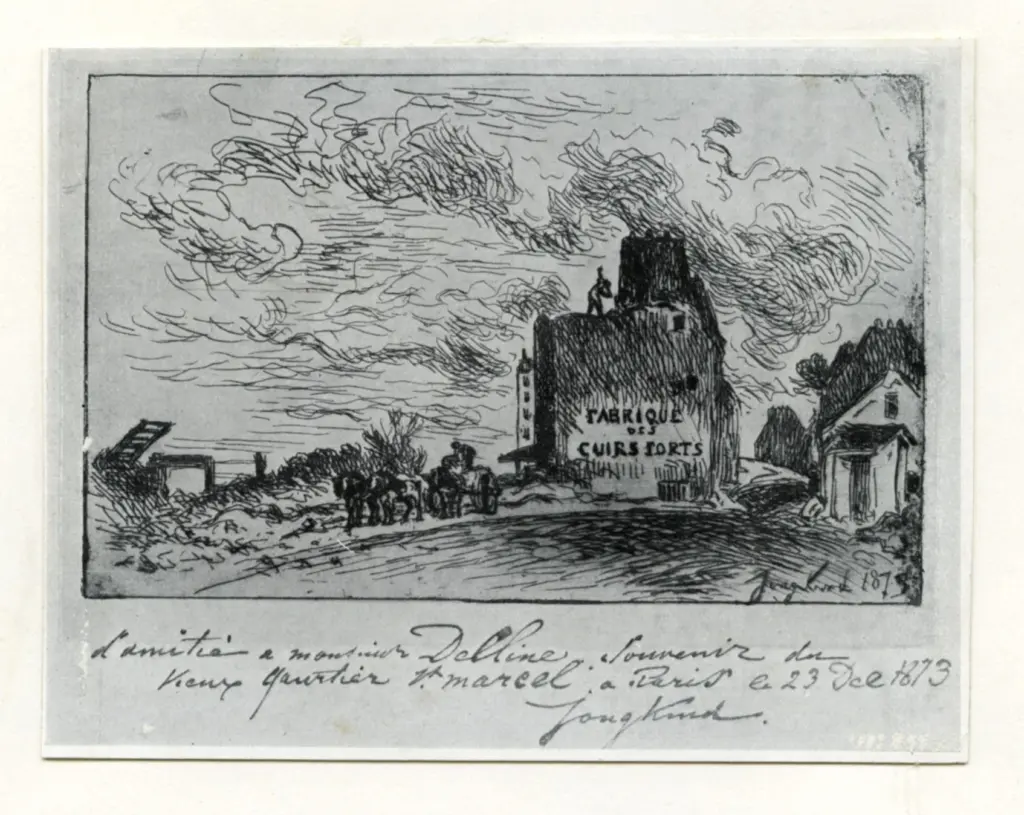 FABRIQUE
DES
CUIRS FORTS
Jongkind 1873
d'amitié a monsieur Delline. Souvenir du
Vieux Quartier St marcel. a Paris le 23 Dec 1873
Jongkind.